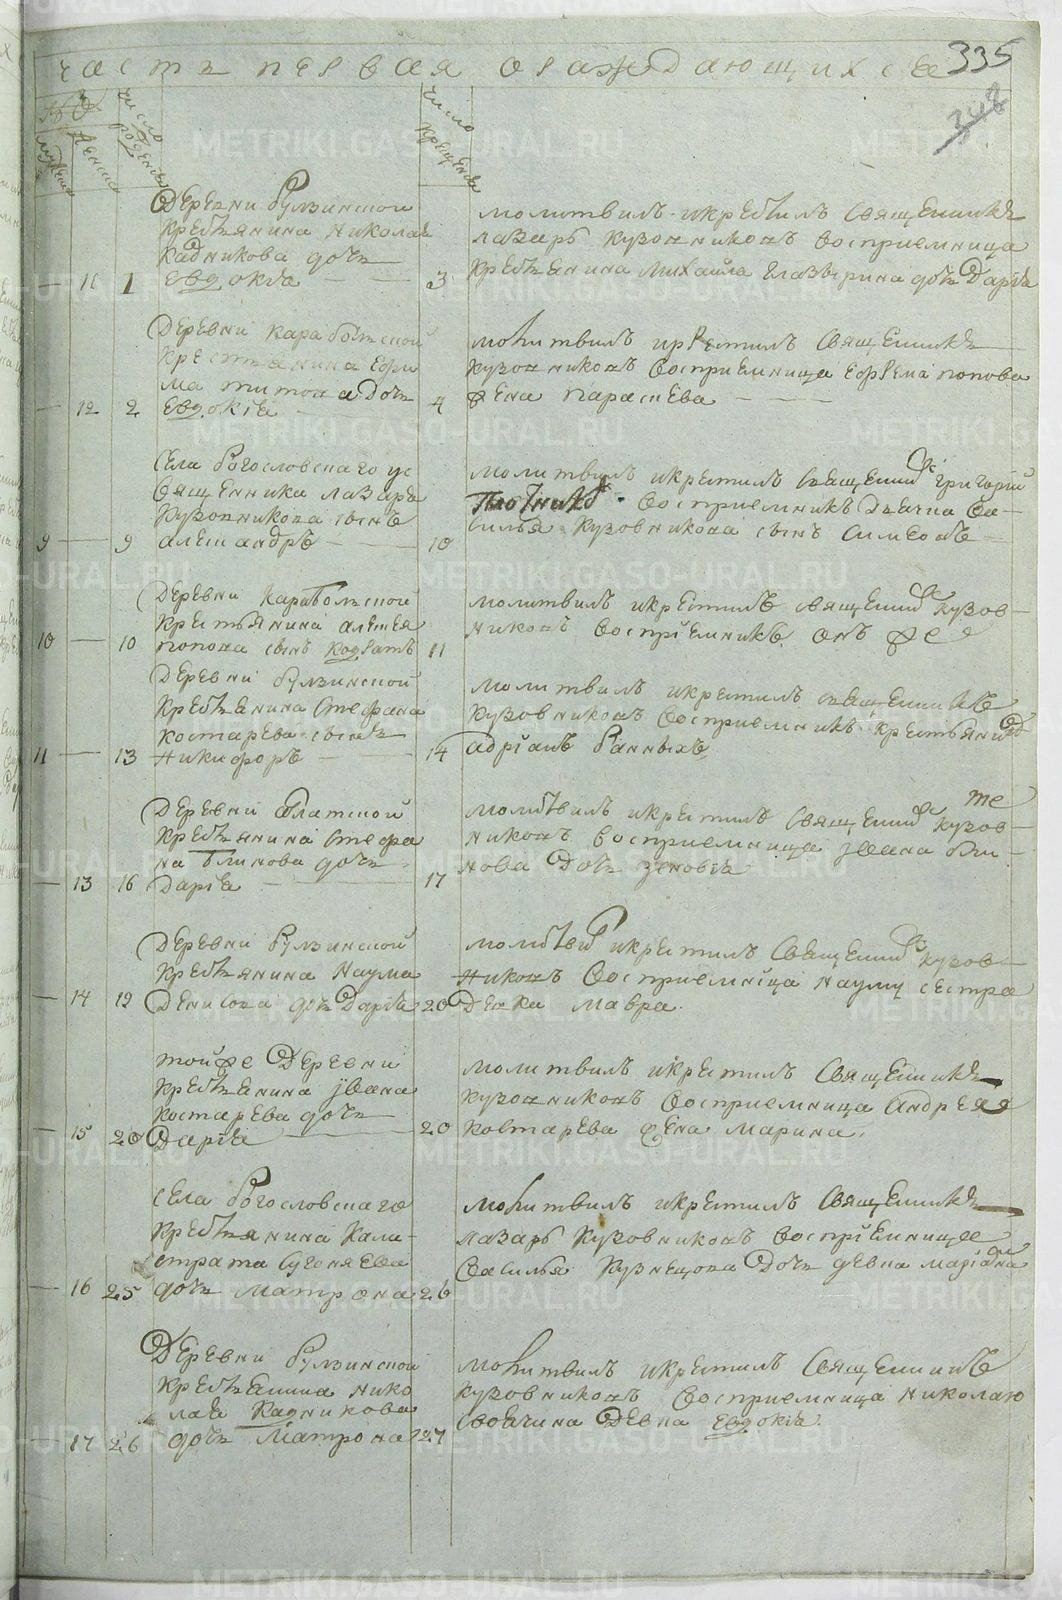 часть первая ораждающихся
335
348
№
мужеска
женска
число рождения
число крещения
Деревни булзинской
крестьянина Николая
кадникова дочь
— 11 1 Евдокїа
3
молитвилъ икрестилъ Священникъ
лазарь кузовниковъ восприемница
крестьянина михайла глазырина дочь Дарїя
Деревни карабольской
крестьянина Ефи
ма титова дочь
— 12 2 Евдокїа
4
молитвилъ икрестилъ Священникъ
кузовниковъ восприемница ефрема попова
жена параскева
Села богословскаго
священника лазаря
кузовникова сынъ
9 — 9 алеѯандръ
10
молитвилъ икрестилъ священникъ григорїй
восприемникъ дьячка ва
силья кузовникова сынъ симеонъ
Деревни карабольской
крестьянина алеѯея
10 — 10 попова сынъ кодратъ
11
молитвилъ икрестилъ священникъ кузов
никовъ восприемникъ онъ же
Деревни булзинской
крестьянина стефана
костарева сынъ
11 — 13 никифоръ
14
молитвилъ икрестилъ священникъ
кузовниковъ восприемникъ крестьянинъ
адрїанъ банныхъ
Деревни блатской
крестьянина стефа
на блинова дочь
— 13 16 Дарїа
17
молитвилъ икрестилъ священникъ кузов
никовъ восприемница їванна бли
нова дочь зеновїа
Деревни булзинской
крестьянина наума
— 14 19 Денисова дочь Дарїя
20
молитвилъ икрестилъ священникъ кузов
никовъ восприемница науму сестра
девка мавра
тойже Деревни
крестьянина їванна
костарева дочь
— 15 20 Дарїа
20
молитвилъ икрестилъ священникъ
кузовниковъ восприемница андрея
костарева жена марина
села богословскаго
крестьянина кали
страта сугоняева
— 16 25 дочь матрона
26
молитвилъ икрестилъ священникъ
лазарь кузовниковъ восприемница
василья кузнецова дочь девка марїанна
Деревни булзинской
крестьянина нико
лая кадникова
— 17 26 дочь матрона
27
молитвилъ икрестилъ священникъ
кузовниковъ восприемница николаю
своячина девка евдокїя
METRIKI.GASO-URAL.RU